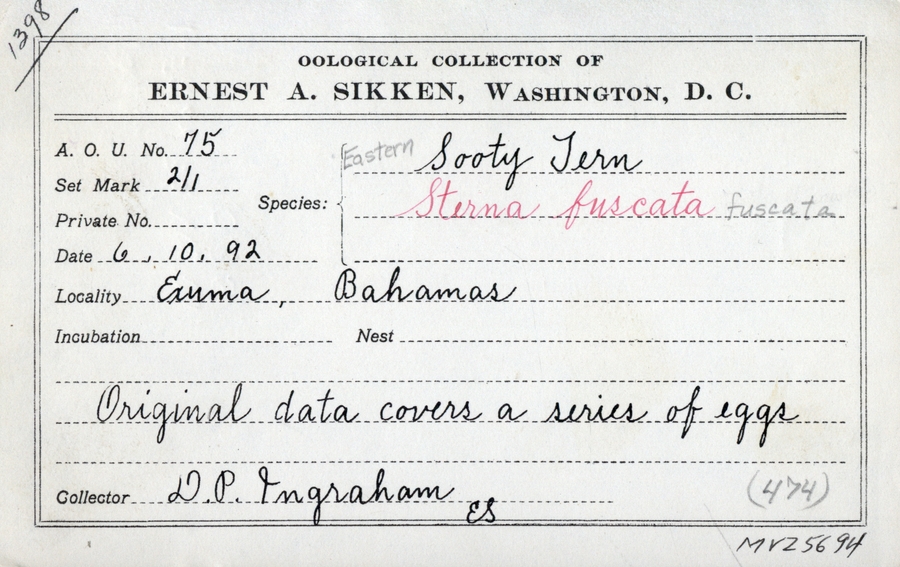 1398
OOLOGICAL COLLECTION OF
ERNEST A. SIKKEN, WASHINGTON, D. C.
A. O. U. No. 75
Eastern Sooty Tern
Set Mark 2/1
Species: Sterna fuscata fuscata
Private No.
Date 6, 10, 92
Locality Exuma, Bahamas
Incubation Nest
Original data covers a series of eggs
Collector D. P. Ingraham
ES
(474)
MVZ5694